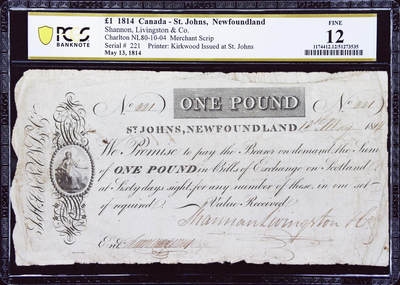 PCGS
BANKNOTE
£1 1814 Canada - St. Johns, Newfoundland
Shannon, Livingston & Co.
Charlton NL80-10-04 Merchant Scrip
Serial # 221 Printer: Kirkwood Issued at St. Johns
May 13, 1814
FINE
12
1174412.12/51273535
No. 221
ONE POUND
No. 221
ST. JOHNS, NEWFOUNDLAND 13th May 1814
We Promise to pay the Bearer on demand, the Sum
of ONE POUND in Bills of Exchange on Scotland
at Sixty days sight for any number of these, in one set
if required Value Received
Shannon Livingston & Co
Ent.